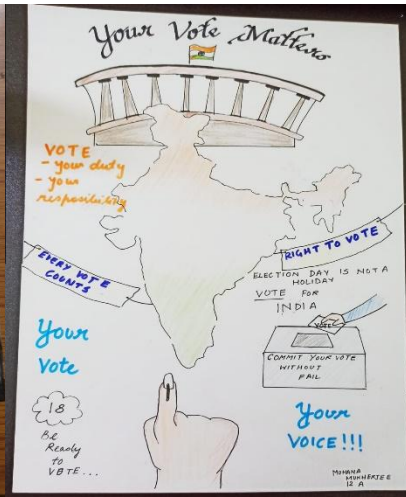 Your Vote Matters
VOTE
- your duty
- your
resposibility
EVERY VOTE
COUNTS
RIGHT TO VOTE
ELECTION DAY IS NOT A
HOLIDAY
VOTE FOR
INDIA
VOTE
COMMIT YOUR VOTE
WITHOUT
FAIL
Your
Vote
18
Be
Ready
to
VOTE...
Your
VOICE!!!
MOHANA
MUKHERJEE
12 A